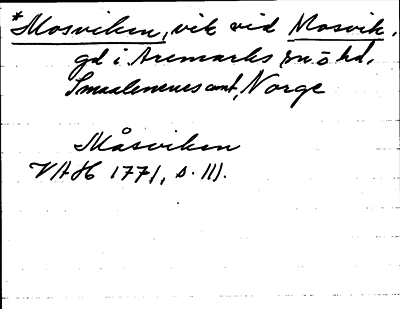 *Mosviken, vik vid Mosvik,
gd i Aremarks sn. o hd,
Smaalenenes amt, Norge
Måsviken
VAH 1771, s. 111.